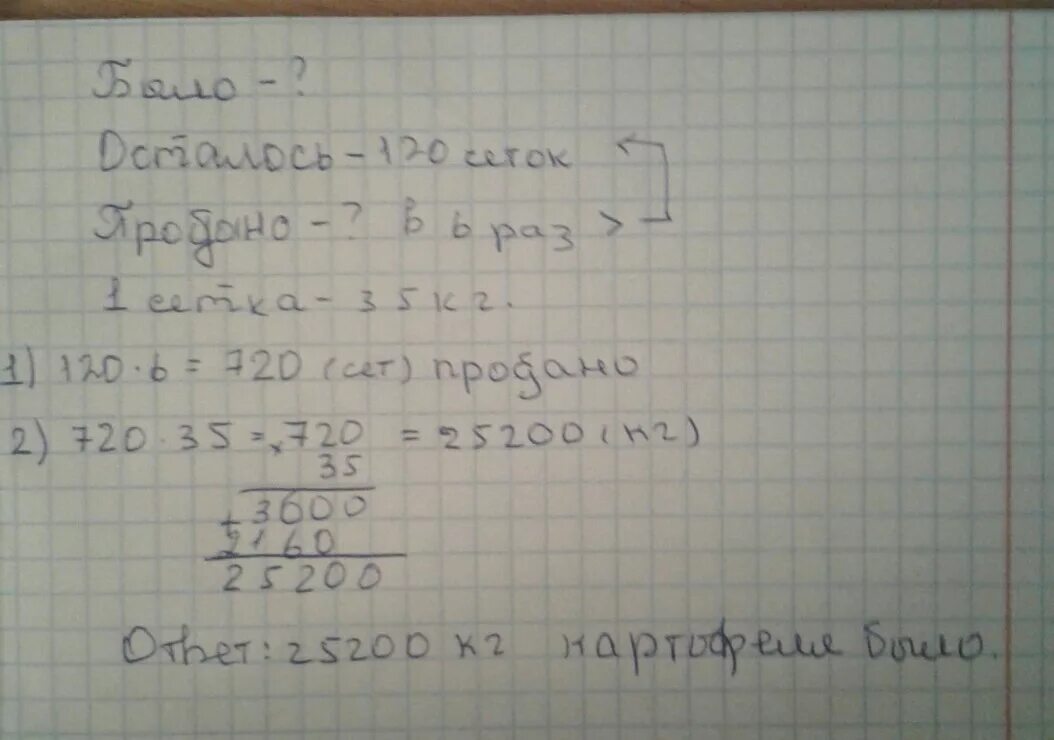 Было - ?
Осталось - 120 сеток
Продано - ? в 6 раз >
1 сетка - 35 кг.
1) 120 · 6 = 720 (сет) продано
2) 720 · 35 = × 720 = 25200 (кг)
35
+ 3600
2160
25200
Ответ: 25200 кг картофеля было.